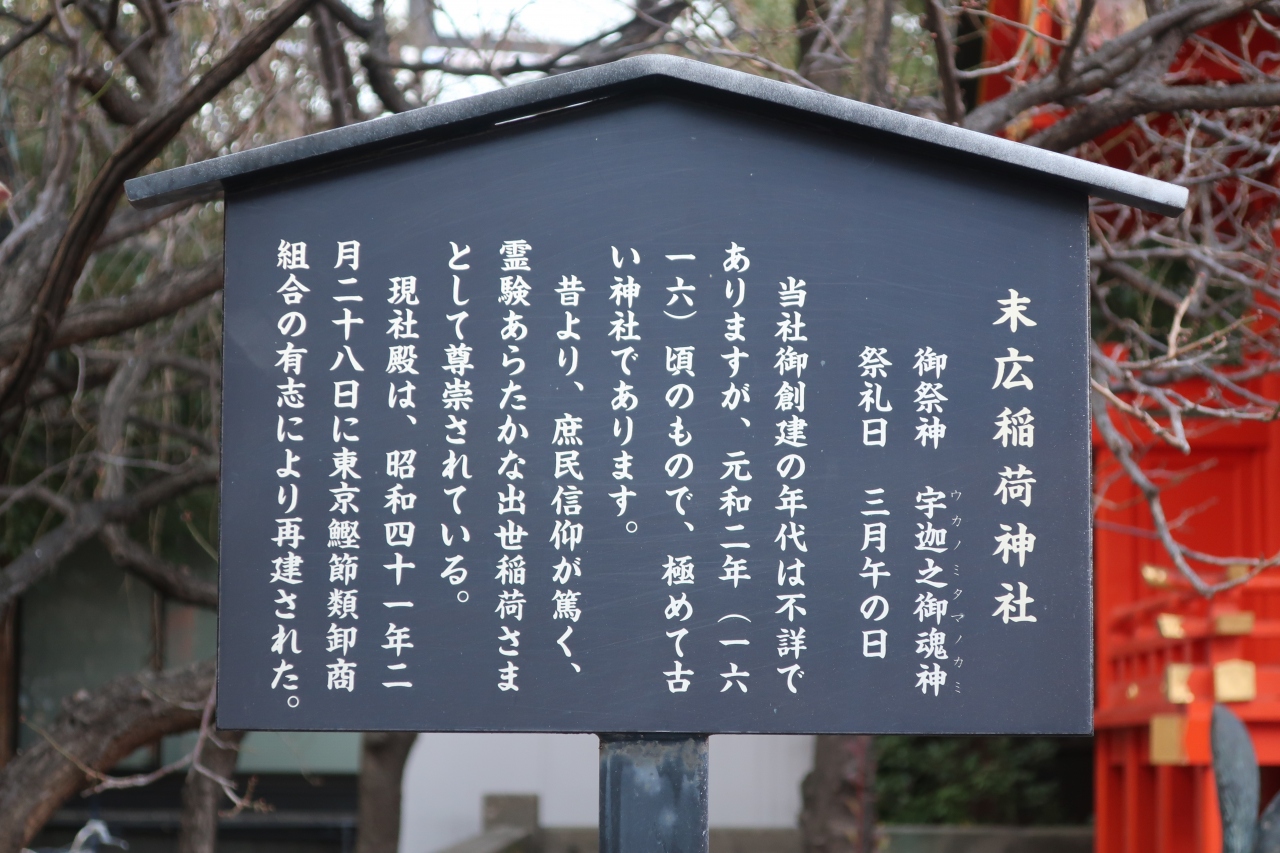 末広稲荷神社
御祭神 宇迦之御魂神
ウカノミタマノカミ
祭礼日 三月午の日
当社御創建の年代は不詳で
ありますが、元和二年（一六
一六）頃のもので、極めて古
い神社であります。
昔より、庶民信仰が篤く、
霊験あらたかな出世稲荷さま
として尊崇されている。
現社殿は、昭和四十一年二
月二十八日に東京鰹節類卸商
組合の有志により再建された。